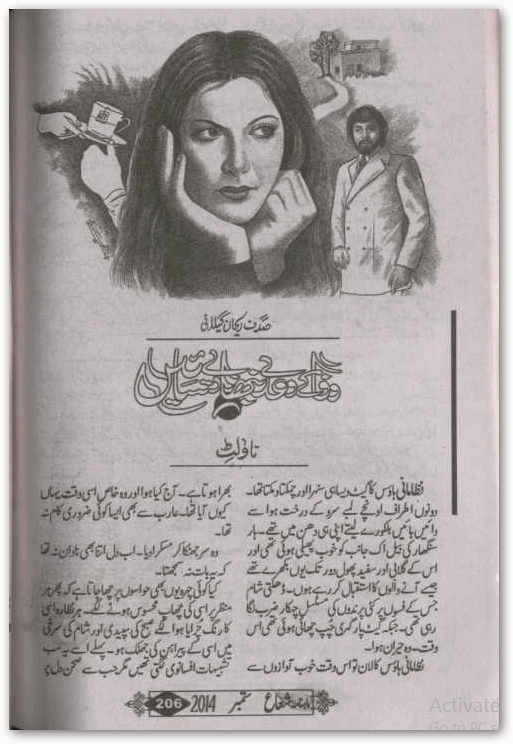 صدف ریحان گیلانی
ناولٹ
نظامانی ہاؤس کا گیٹ ویسا ہی سنہرا اور چمکتا دمکتا تھا۔
دونوں اطراف اونچے لمبے سرو کے درخت ہوا سے
دائیں بائیں ہلکورے لیتے اپنی ہی دھن میں تھے۔ ہار
سنگھار کی بیل اک جانب کو خوب پھیلی ہوئی تھی اور
اس کے گلابی اور سفید پھول دور تک یوں بکھرے تھے
جیسے آنے والوں کا استقبال کر رہے ہوں۔ ڈھلتی شام
جس کے فسوں پر کئی پرندوں کی مسلسل چہکار ضرب لگا
رہی تھی۔ جبکہ گیٹ پار گہری چپ چھائی ہوئی تھی اس
وقت۔ وہ حیران ہوا۔
نظامانی ہاؤس کا لان تو اس وقت خوب آوازوں سے
بھرا ہوتا ہے۔ آج کیا ہوا اور وہ خاص اسی وقت یہاں
کیوں آیا تھا۔ عارب سے بھی ایسا کوئی ضروری کام نہ
تھا۔
وہ سر جھٹک کر مسکرا دیا۔ اب دل اتنا بھی نادان نہ تھا
کہ یہ بات نہ سمجھتا۔
کیا کوئی چہرہ یوں بھی حواسوں پر چھا جاتا ہے کہ پھر ہر
منظر پر اسی کی چھاپ محسوس ہونے لگے۔ ہر نظارہ اسی
کا رنگ چرایا ہوا لگے صبح کی سپیدی اور شام کی سرخی
میں اسی کے پیراہن کی جھلک ہو۔ پہلے اسے یہ سب
تشبیہات افسانوی لگتی تھیں مگر جب سے صحن دل پر
ماہنامہ شعاع ستمبر 2014 206
Activate
Go to PC s